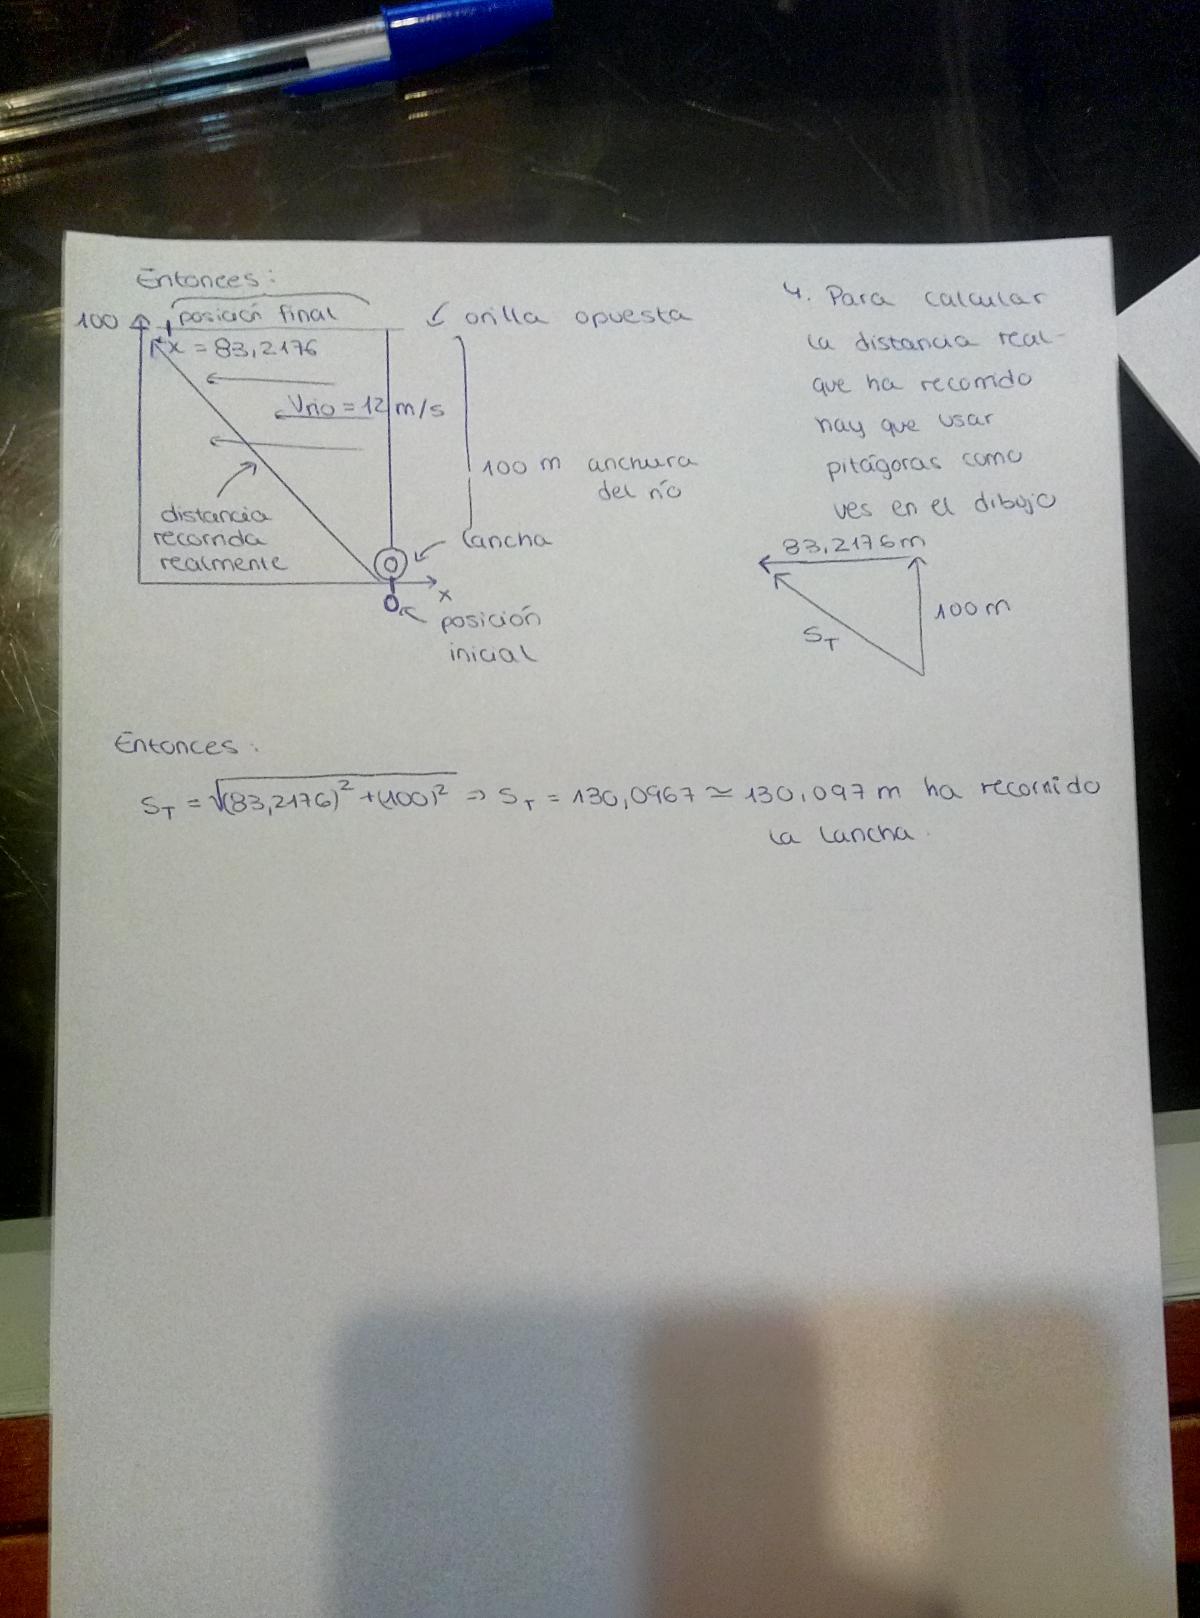 Entonces:
posición final
100
x = 83,2176
Vrio = 12 m/s
distancia
recorrida
realmente
orilla opuesta
100 m anchura
del río
lancha
x
posición
inicial
4. Para calcular
la distancia real
que ha recorrido
hay que usar
pitágoras como
ves en el dibujo
83,2176m
100m
S_T
Entonces:
S_T = √(83,2176)² + (100)² => S_T = 130,0967 ≃ 130,097 m ha recorrido
la lancha.